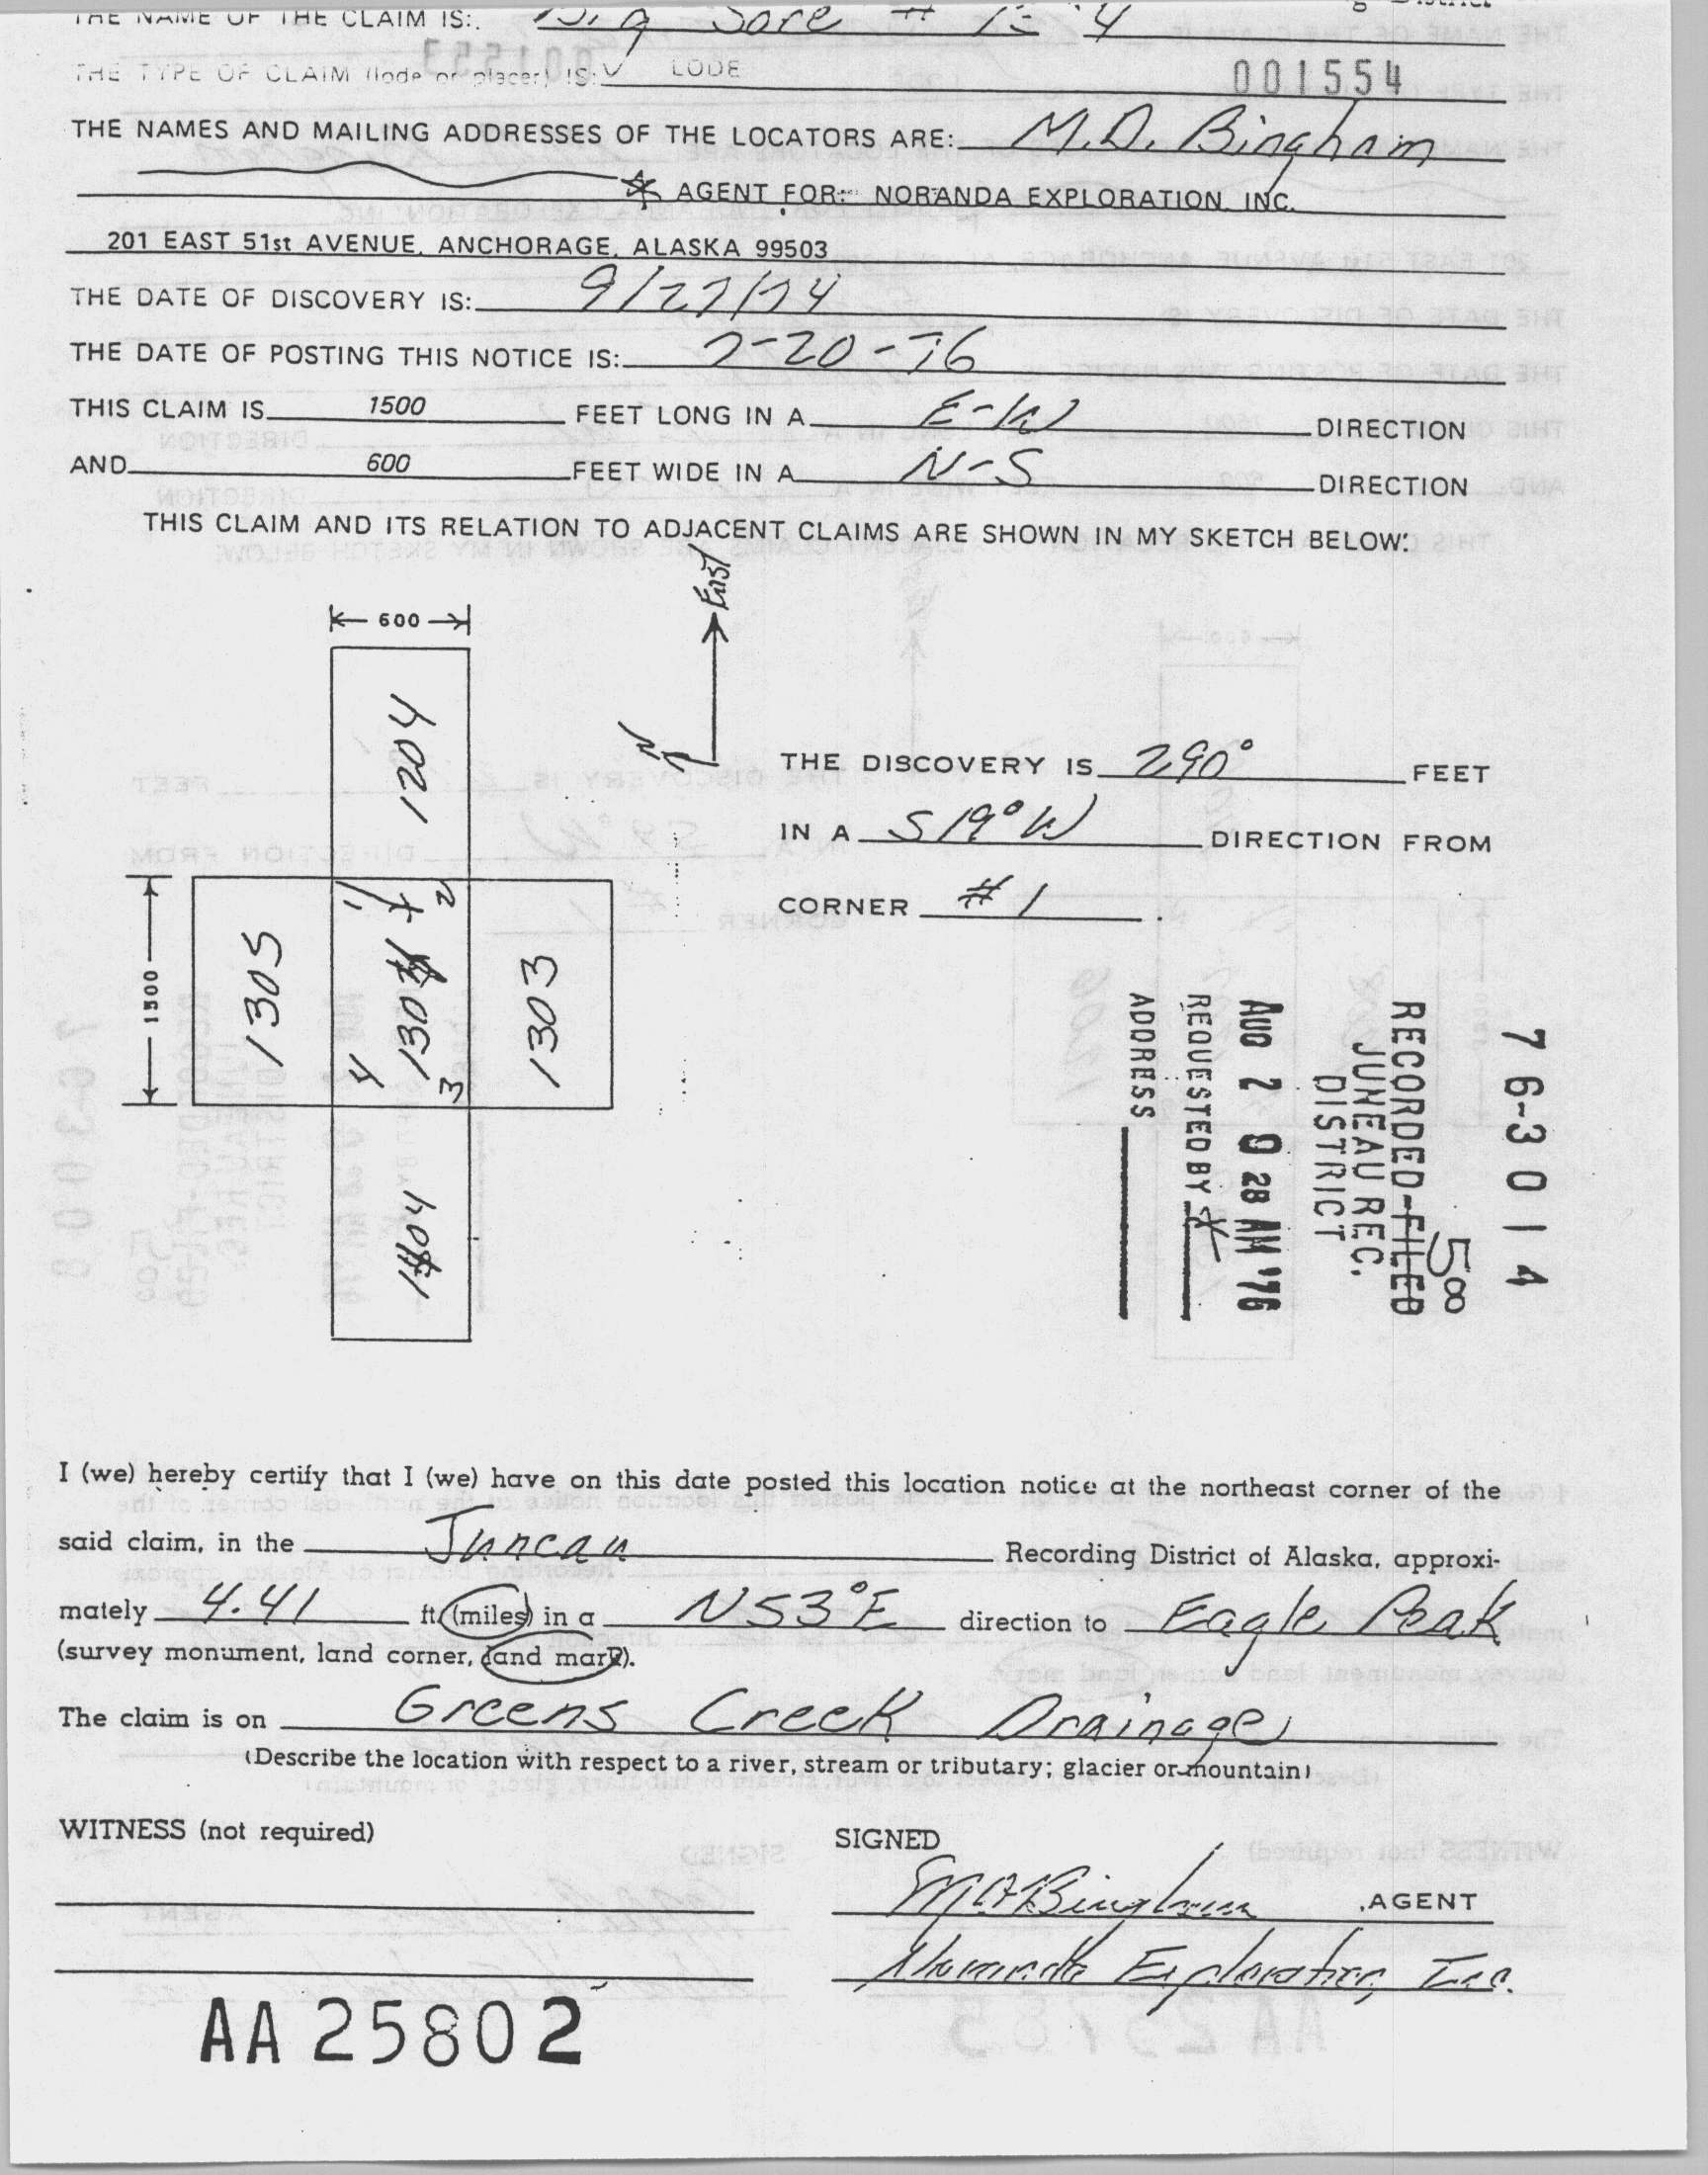 THE NAME OF THE CLAIM IS: Big Sore #
THE TYPE OF CLAIM (lode or placer) IS: LODE
001554
THE NAMES AND MAILING ADDRESSES OF THE LOCATORS ARE: M.D. Bingham
AGENT FOR: NORANDA EXPLORATION, INC.
201 EAST 51st AVENUE, ANCHORAGE, ALASKA 99503
THE DATE OF DISCOVERY IS: 9/27/74
THE DATE OF POSTING THIS NOTICE IS: 7-20-76
THIS CLAIM IS 1500 FEET LONG IN A E-W DIRECTION
AND 600 FEET WIDE IN A N-S DIRECTION
THIS CLAIM AND ITS RELATION TO ADJACENT CLAIMS ARE SHOWN IN MY SKETCH BELOW:
East
600
N
1204
THE DISCOVERY IS 290° FEET
IN A S 19° W DIRECTION FROM
CORNER # 1.
1 2
1500
1305
1303
4 3
76-3014
58
RECORDED-FILED
JUNEAU REC.
DISTRICT
AUG 2 9 28 AM '76
REQUESTED BY
ADDRESS
I (we) hereby certify that I (we) have on this date posted this location notice at the northeast corner of the
said claim, in the Juneau Recording District of Alaska, approxi-
mately 4.41 ft. (miles) in a N53°E direction to Eagle Peak
(survey monument, land corner, land mark).
The claim is on Greens Creek Drainage
(Describe the location with respect to a river, stream or tributary; glacier or mountain)
WITNESS (not required) SIGNED
M.D. Bingham, AGENT
Noranda Exploration, Inc.
AA 25802